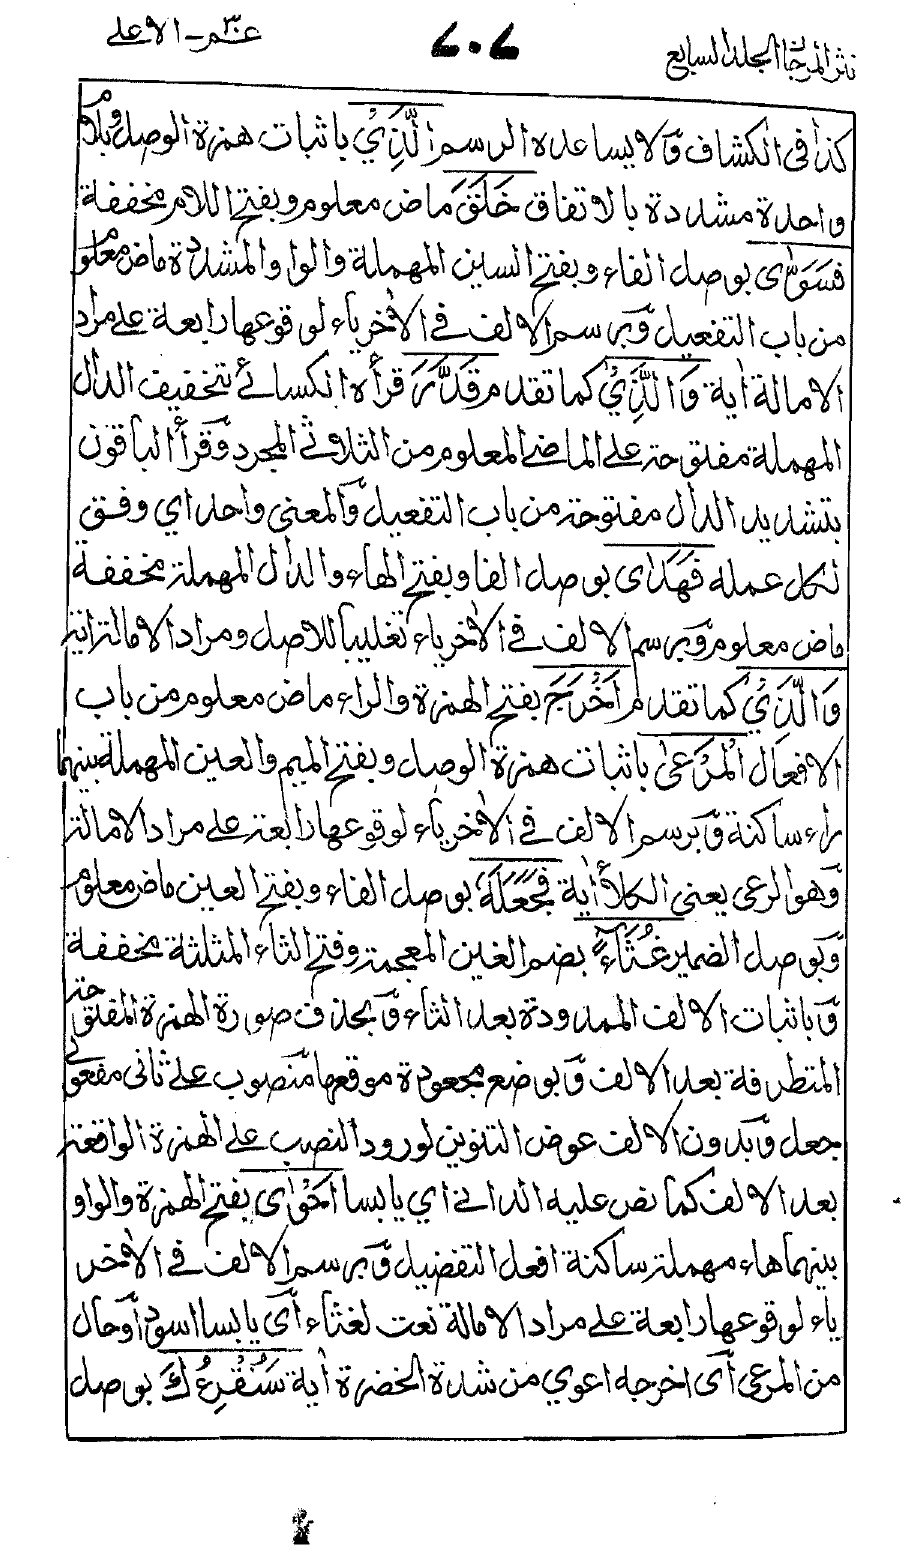 نثر المرجان المجلد السابع
٧٠٧
عم ٣٠ - الاعلى
كذا في الكشاف وَلا يساعده الرسم الَّذِيْ باثبات همزة الوصل وبلام
واحدة مشددة بالاتفاق خَلَقَ ماض معلوم وبفتح اللام مخففة
فَسَوّٰى بوصل الفاء وبفتح السين المهملة والواو المشددة ماض معلوم
من باب التفعيل وَبرسم الالف في الاٰخر ياء لوقوعها رابعة على مراد
الامالة اٰية وَالَّذِيْ كما تقدم قَدَّرَ قرأه الكسائي بتخفيف الدال
المهملة مفتوحة على الماضي المعلوم من الثلاثي المجرد وَقرأ الباقون
بتشديد الدال مفتوحة من باب التفعيل وَالمعنى واحد اي وفق
لكل عمله فَهَدٰى بوصل الفا وبفتح الهاء والدال المهملة مخففة
ماض معلوم وَبرسم الالف في الاٰخر ياء تغليبا للاصل ومراد الامالة اٰية
وَالَّذِيْ كما تقدم اَخْرَجَ بفتح الهمزة والراء ماض معلوم من باب
الافعال الْمَرْعٰى باثبات همزة الوصل وبفتح الميم والعين المهملة بينهما
راء ساكنة وَبرسم الالف في الاٰخر ياء لوقوعها رابعة على مراد الامالة
وَهو الرعى يعني الكلأ اٰية فَجَعَلَهٗ بوصل الفاء وبفتح العين ماض معلوم
وَبوصل الضمير غُثَآءً بضم الغين المعجمة وفتح الثاء المثلثة مخففة
وَباثبات الالف الممدودة بعد الثاء وَبحذف صورة الهمزة المفتوحة
المتطرفة بعد الالف وَبوضع مجعودة موقعها منصوب على ثانى مفعولي
جعل وَبدون الالف عوض التنوين لورود النصب على الهمزة الواقعة
بعد الالف كما نص عليه الداني اي يابسا اَحْوٰى بفتح الهمزة والواو
بينهما حاء مهملة ساكنة افعل التفضيل وَبرسم الالف في الاٰخر
ياء لوقوعها رابعة على مراد الامالة نعت لغثاء اَي يابسا اسود اَو حال
من المرعى اَى اخرجه احوى من شدة الخضرة اٰية سَنُقْرِئُكَ بوصل